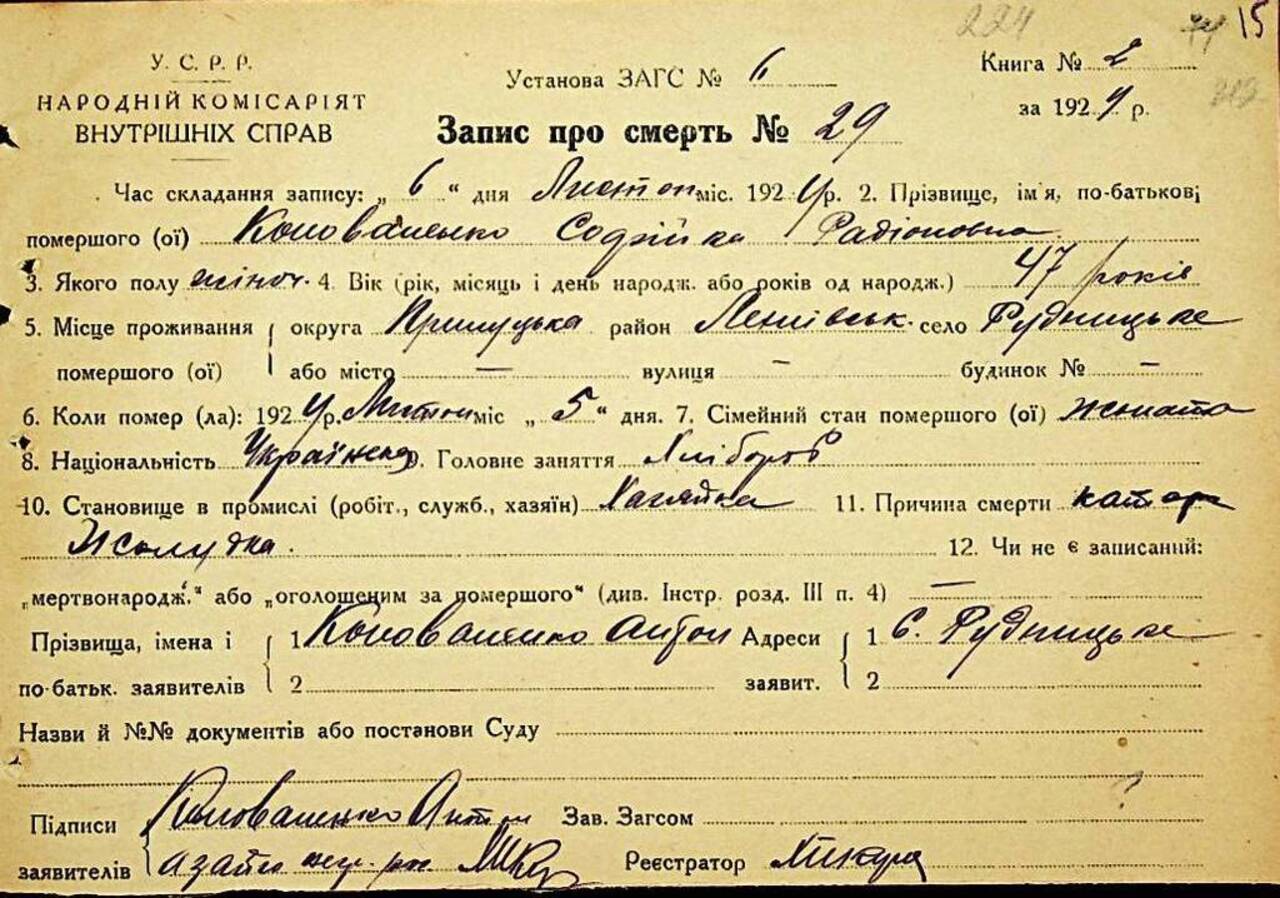 224 15
У. С. Р. Р.
НАРОДНІЙ КОМІСАРІЯТ
ВНУТРІШНІХ СПРАВ
Установа ЗАГС № 6
Книга № 2
за 1924 р.
Запис про смерть № 29
Час складання запису: „ 6 “ дня Листоп міс. 1924 р. 2. Прізвище, ім'я, по-батькові
помершого (ої) Коноваленко Софійка Радіоновна
3. Якого полу жіноч. 4. Вік (рік, місяць і день народж. або років од народж.) 47 років
5. Місце проживання округа Прилуцька район Леннівськ. село Рудницьке
помершого (ої) або місто — вулиця — будинок № —
6. Коли помер (ла): 1924 р. Листоп міс „ 5 “ дня. 7. Сімейний стан помершого (ої) жоната
8. Національність Українка 9. Головне заняття Хлібороб
10. Становище в промислі (робіт., служб., хазяїн) Хазяйка 11. Причина смерти катар
Жолудка. 12. Чи не є записаний:
„мертвонародж.“ або „оголошеним за помершого“ (див. Інстр. розд. III п. 4) —
Прізвища, імена і 1 Коноваленко Антон Адреси 1 С. Рудницьке
по-батьк. заявителів 2 заявит. 2
Назви й №№ документів або постанови Суду
Підписи Коноваленко Антон Зав. Загсом
заявителів Реєстратор